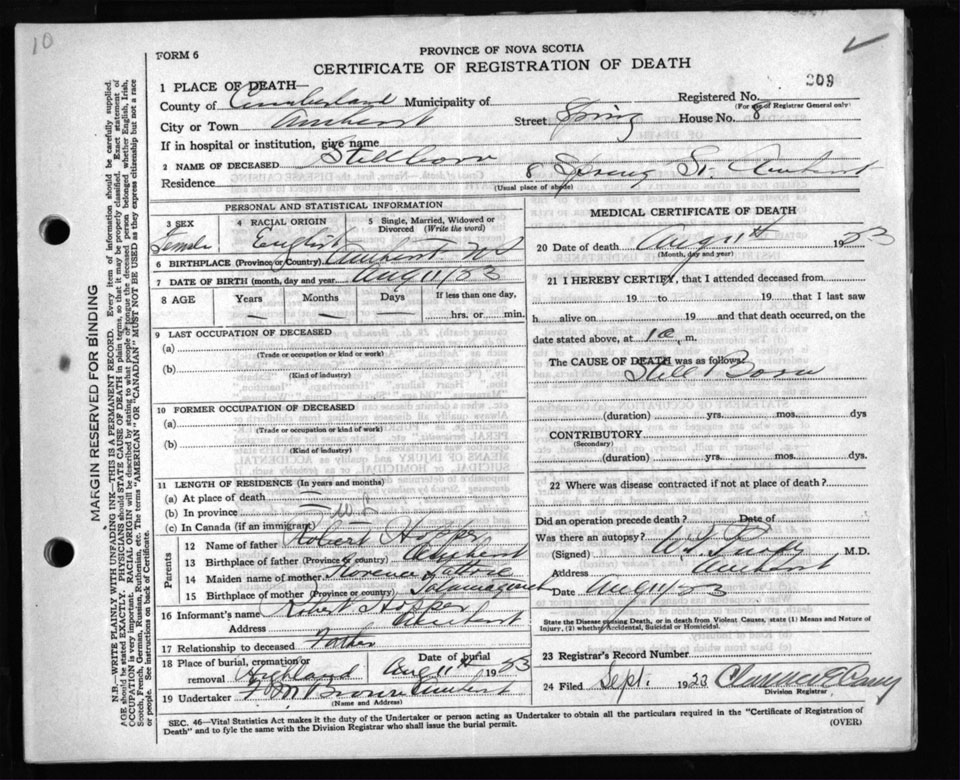 10
FORM 6
PROVINCE OF NOVA SCOTIA
CERTIFICATE OF REGISTRATION OF DEATH
209
1 PLACE OF DEATH—
County of Cumberland Municipality of
Registered No.
(For use of Registrar General only)
City or Town Amherst Street Spring House No. 8
If in hospital or institution, give name
2 NAME OF DECEASED Stillborn
Residence 8 Spring St. Amherst
(Usual place of abode)
PERSONAL AND STATISTICAL INFORMATION
3 SEX 4 RACIAL ORIGIN 5 Single, Married, Widowed or Divorced (Write the word)
Female English
6 BIRTHPLACE (Province or Country) Amherst. NS
7 DATE OF BIRTH (month, day and year) Aug 11/33
8 AGE Years Months Days If less than one day,
— — — ....hrs. or.....min.
9 LAST OCCUPATION OF DECEASED
(a)
(Trade or occupation or kind or work)
(b)
(Kind of industry)
10 FORMER OCCUPATION OF DECEASED
(a)
(Trade or occupation or kind or work)
(b)
(Kind of industry)
11 LENGTH OF RESIDENCE (In years and months)
(a) At place of death —
(b) In province —
(c) In Canada (if an immigrant)
Parents
12 Name of father Robert Hopper
13 Birthplace of father (Province or country) Amherst
14 Maiden name of mother Florence
15 Birthplace of mother (Province or country)
16 Informant's name Robert Hopper
Address Amherst
17 Relationship to deceased Father
18 Place of burial, cremation or removal Highland Date of burial Aug 11th 1933
19 Undertaker F M Brown Amherst
(Name and Address)
MEDICAL CERTIFICATE OF DEATH
20 Date of death Aug 11th 1933
(Month, day and year)
21 I HEREBY CERTIFY, that I attended deceased from
19 to 19 that I last saw
h alive on 19 and that death occurred, on
date stated above, at m.
The CAUSE OF DEATH was as follows:
Still Born
(duration) yrs. mos. dys
CONTRIBUTORY
(Secondary)
(duration) yrs. mos. dys
22 Where was disease contracted if not at place of death?
Did an operation precede death? Date of
Was there an autopsy?
(Signed) M.D.
Address Amherst
Date Aug 11/33
State the Disease causing Death, or in death from Violent Causes, state (1) Means and Nature of
Injury, (2) whether Accidental, Suicidal or Homicidal.
23 Registrar's Record Number
24 Filed Sept. 1933 Clarence E Casey
Division Registrar
SEC. 46—Vital Statistics Act makes it the duty of the Undertaker or person acting as Undertaker to obtain all the particulars required in the "Certificate of Registration of
Death" and to fyle the same with the Division Registrar who shall issue the burial permit. (OVER)
MARGIN RESERVED FOR BINDING
N.B.—WRITE PLAINLY WITH UNFADING INK—THIS IS A PERMANENT RECORD. Every item of information should be carefully supplied.
AGE should be stated EXACTLY. PHYSICIANS should STATE CAUSE OF DEATH in plain terms, so that it may be properly classified. Exact statement of
OCCUPATION is very important. RACIAL ORIGIN will be described by stating to what people or tongue the deceased person belonged whether English, Irish,
Scotch, French, German, Russian, Ruthenian, etc. The terms "AMERICAN" or "CANADIAN" MUST NOT BE USED as they express citizenship but not a race
or people. See instructions on back of Certificate.